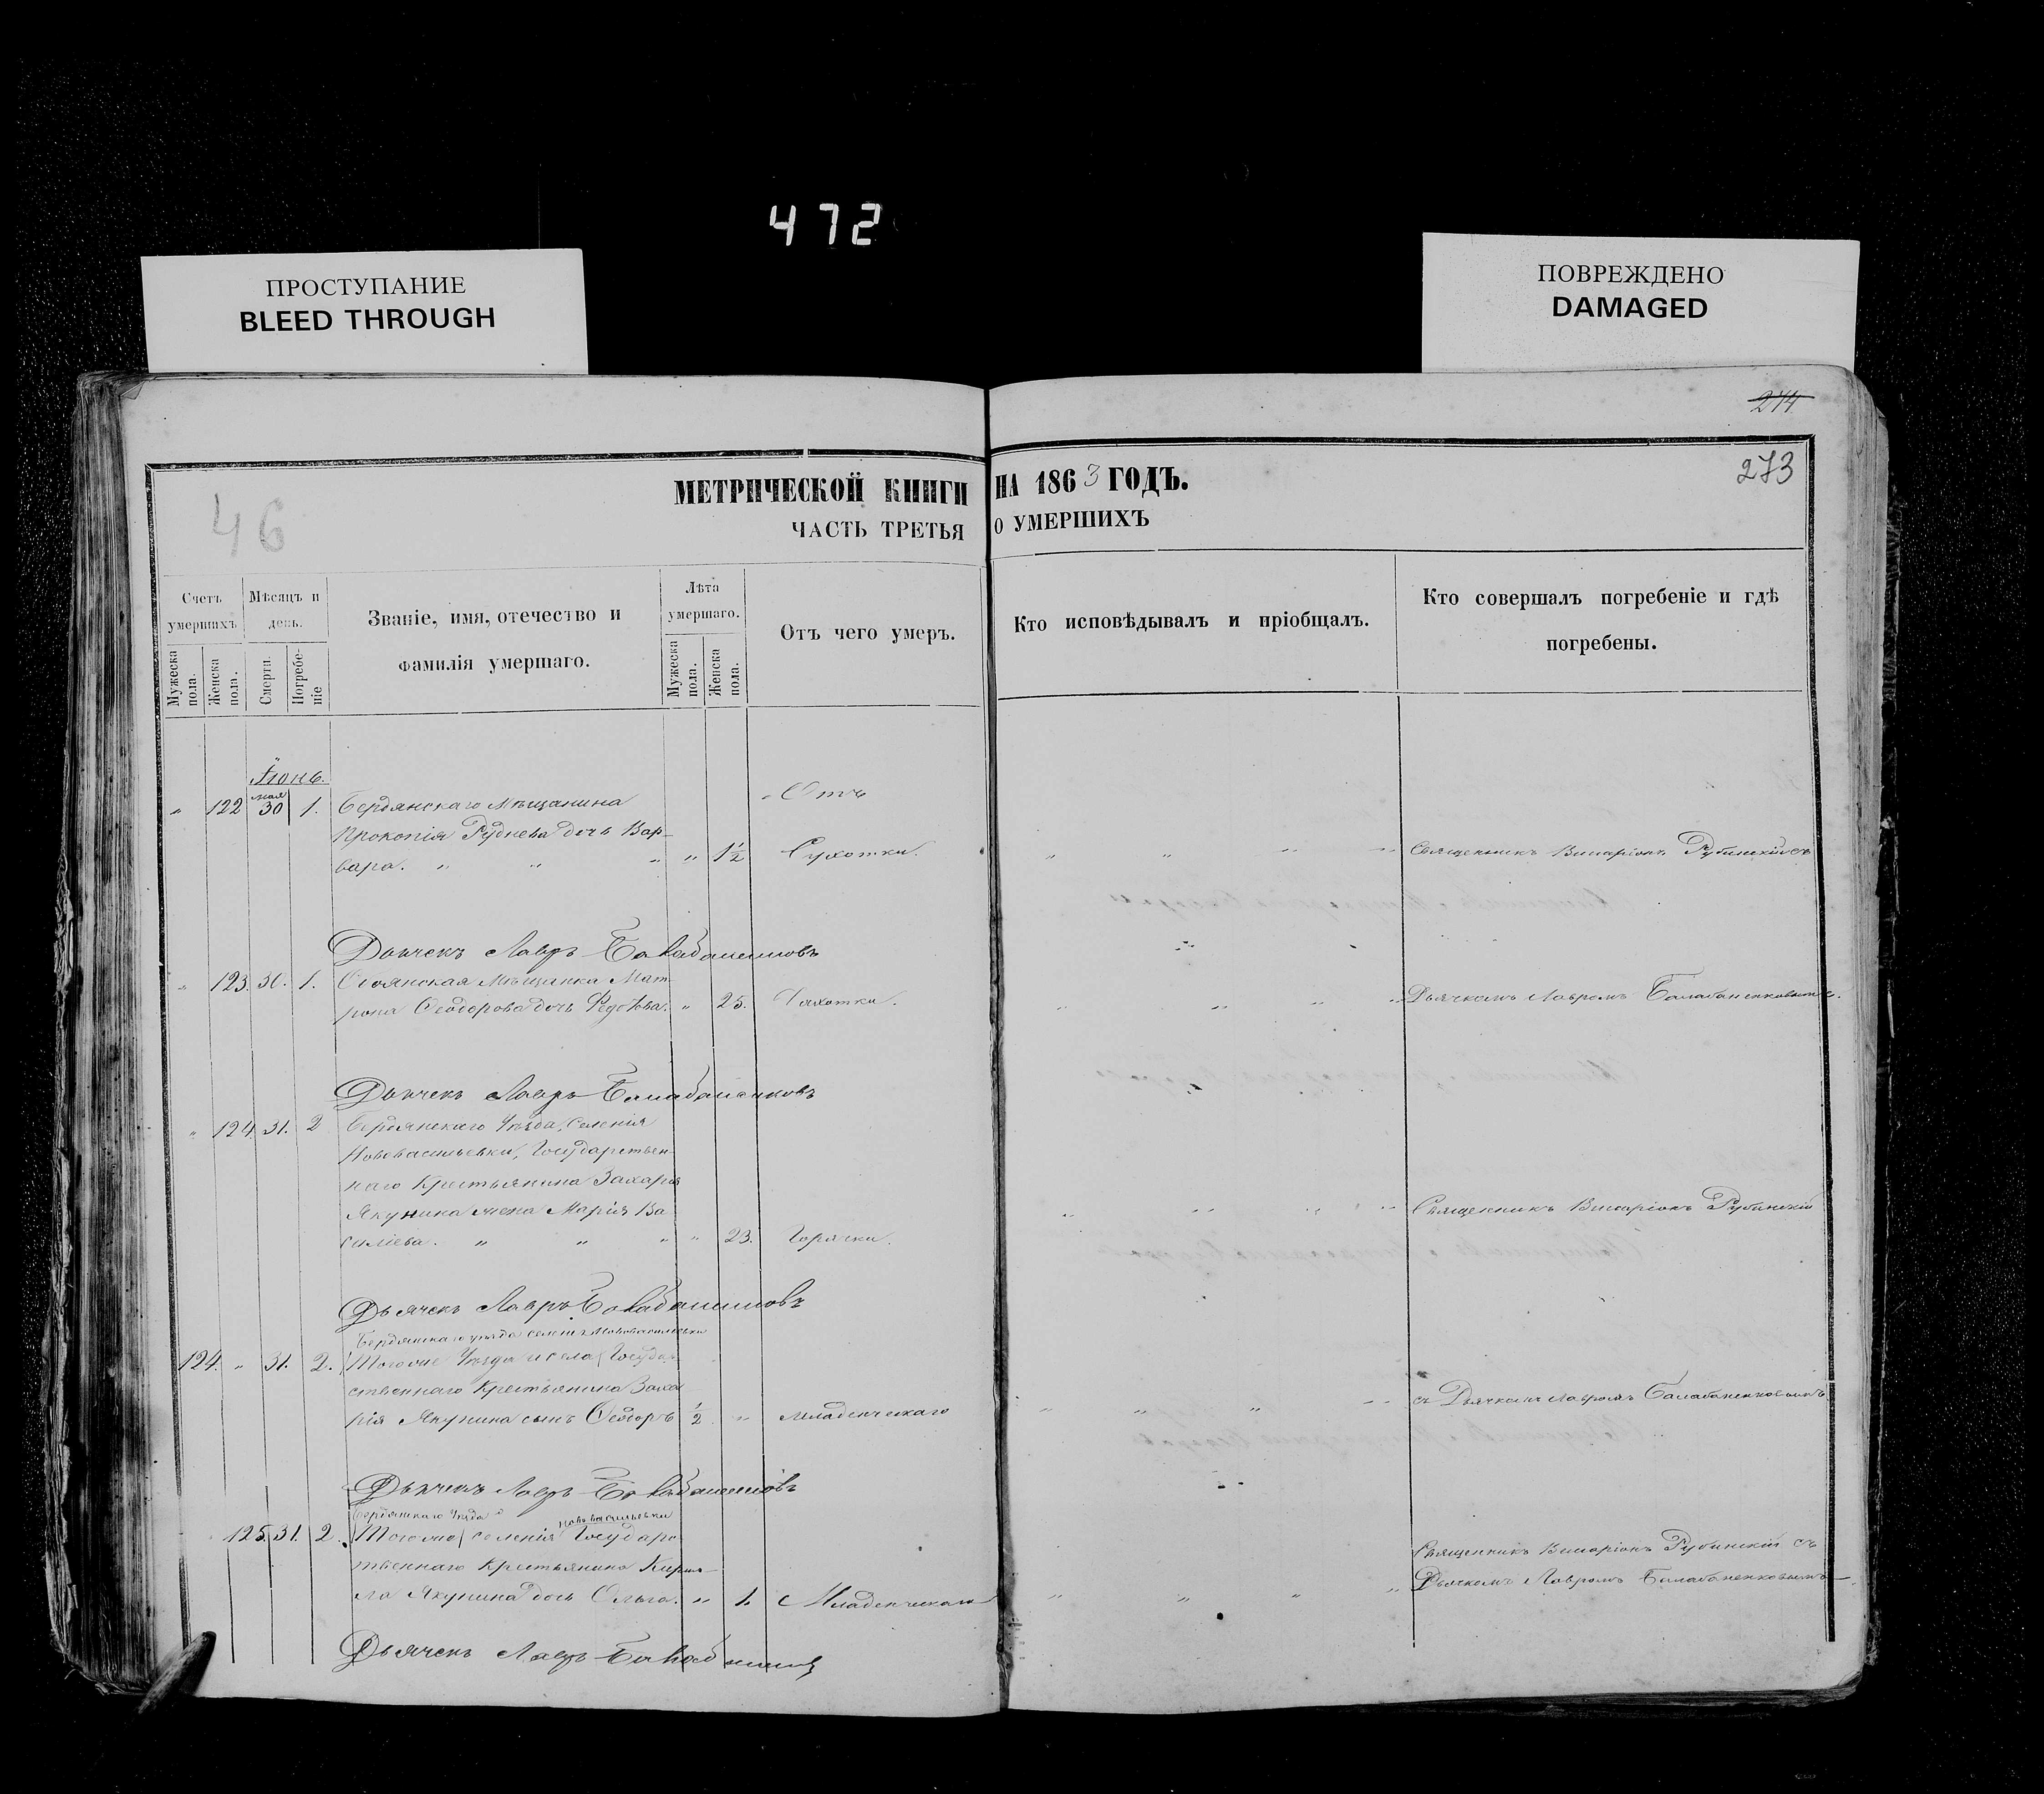 472
ПРОСТУПАНИЕ
BLEED THROUGH
ПОВРЕЖДЕНО
DAMAGED
274
273
46
МЕТРИЧЕСКОЙ КНИГИ НА 1863 ГОДЪ.
ЧАСТЬ ТРЕТЬЯ О УМЕРШИХЪ
Счетъ умершихъ.
Мужеска пола.
Женска пола.
Мѣсяцъ и день.
Смерти.
Погребеніе
Званіе, имя, отечество и
фамилія умершаго.
Лѣта умершаго.
Мужеска пола.
Женска пола.
Отъ чего умеръ.
Кто исповѣдывалъ и пріобщалъ.
Кто совершалъ погребеніе и гдѣ
погребены.
Іюнь.
мая
" 122 30 1. Бердянскаго Мѣщанина Отъ
Прокопія Руднева дочь Вар-
вара. " " " " 1½ Сухотки. " " " " Священникъ Виссаріонъ Рубинскій съ
Дьячекъ Лавръ Балабаненковъ
" 123. 31. 1. Обоянская Мѣщанка Мат-
рона Ѳеодорова дочь " 25. Чахотки. " " " " Дьячкомъ Лавромъ Балабаненковымъ.
Дьячекъ Лавръ Балабаненковъ
" 124. 31. 2 Бердянскаго Уѣзда, Селенія
Нововасильевки, Государствен-
наго Крестьянина Захарія
Якунина жена Марія Ва
силіева. " " " " 23. Горячки. " " " " Священникъ Виссаріонъ Рубинскій
Дьячекъ Лавръ Балабаненковъ
Бердянскаго уѣзда селенія Нововасильевки
124. " 31. 2. Тогоже Уѣзда и села Государ-
ственнаго Крестьянина Заха-
рія Якунина сынъ Ѳеодоръ ½ " Младенческаго " " " " съ Дьячкомъ Лавромъ Балабаненковымъ
Дьячекъ Лавръ Балабаненковъ
Бердянскаго Уѣзда Нововасильевки
125. 31. 2. Тогоже селенія Государс
твеннаго Крестьянина Кирил- Священникъ Виссаріонъ Рубинскій съ
ла Якунина дочь Ольга. " 1. Младенческаго " " " " Дьячкомъ Лавромъ Балабаненковымъ
Дьячекъ Лавръ Балабаненковъ